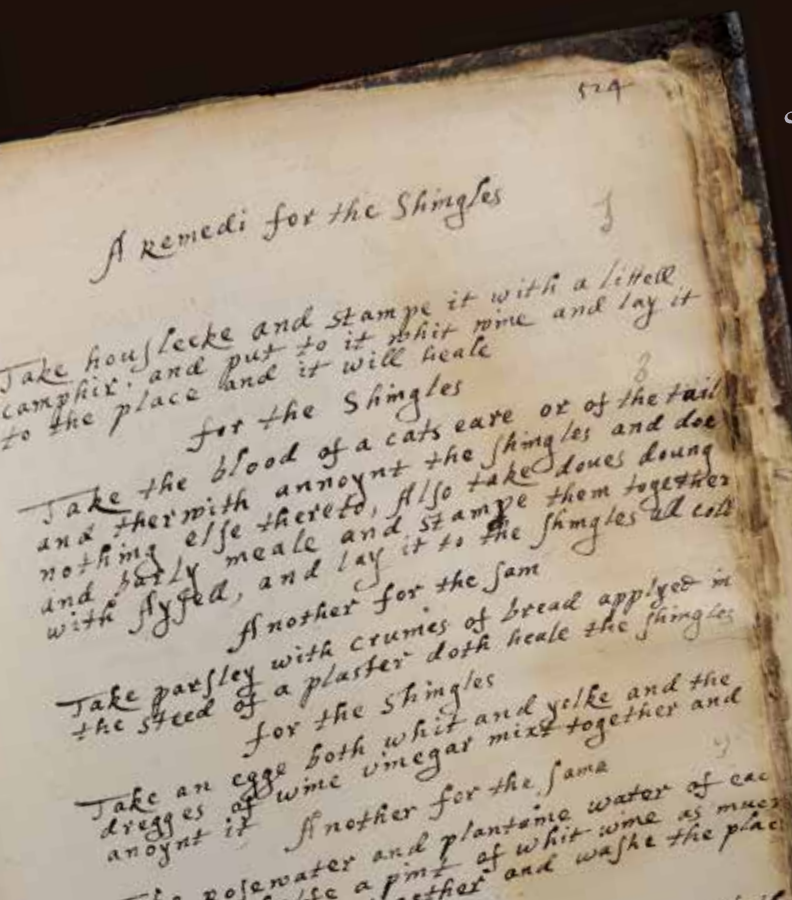 524
A Remedi for the Shingles
Take houslecke and stampe it with a littell
camphir. and put to it whit wine and lay it
to the place and it will heale
for the Shingles
Take the blood of a cats eare or of the tail
and therwith annoynt the shingles and doe
nothing else thereto, Also take doves doung
and barly meale and stampe them together
with Aysell, and lay it to the shingles all cold
Another for the sam
Take parsley with crumes of bread applyed in
the steed of a plaster doth heale the shingles
for the Shingles
Take an egge both whit and yelke and the
dregges of wine vinegar mixt together and
anoynt it
Another for the same
rosewater and plantaine water of eac
a pint of whit wine as much
and washe the plac